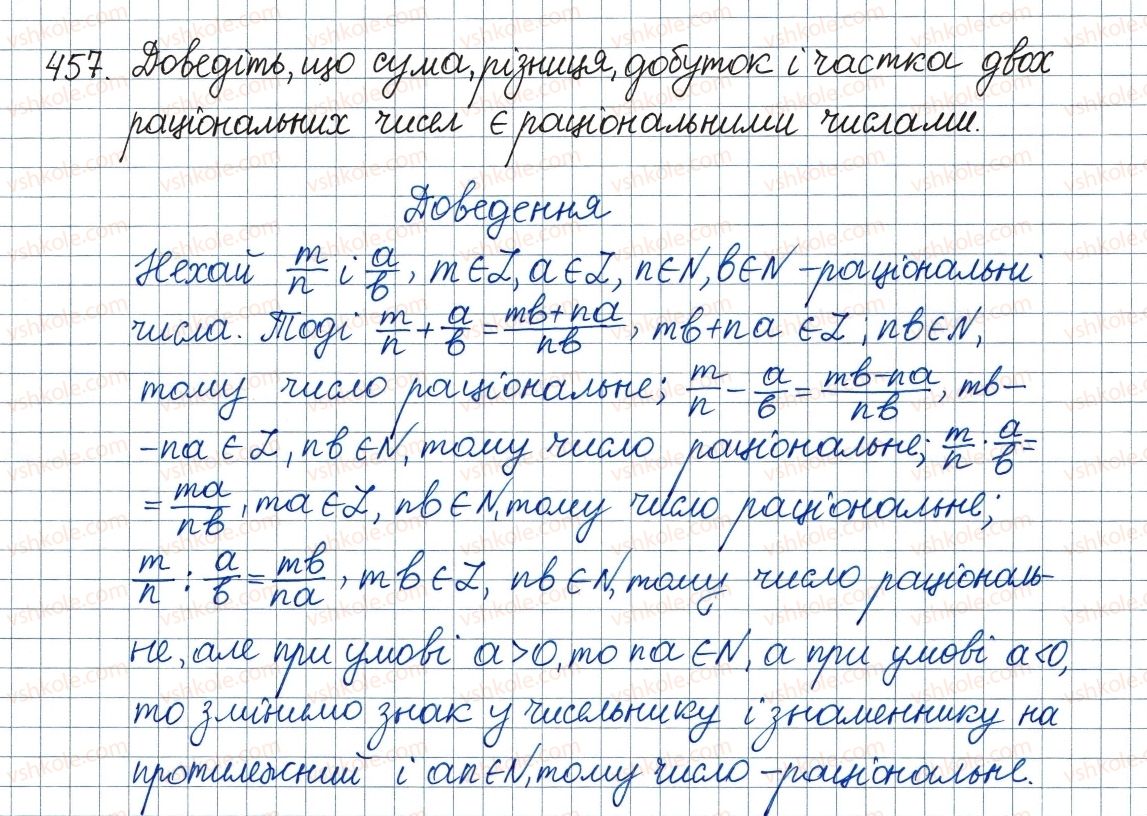 457. Доведіть, що сума, різниця, добуток і частка двох
раціональних чисел є раціональними числами.
Доведення
Нехай m/n і a/b, m∈Z, a∈Z, n∈N, b∈N – раціональні
числа. Тоді m/n + a/b = (mb+na)/nb, mb+na ∈Z ; nb∈N,
тому число раціональне; m/n – a/b = (mb–na)/nb, mb–
–na ∈Z, nb∈N, тому число раціональне; m/n · a/b =
= ma/nb, ma∈Z, nb∈N, тому число раціональне;
m/n : a/b = mb/na, mb∈Z, nb∈N, тому число раціональ-
не, але при умові a>0, то na∈N, а при умові a<0,
то змінимо знак у чисельнику і знаменнику на
протилежний і an∈N, тому число –раціональне.